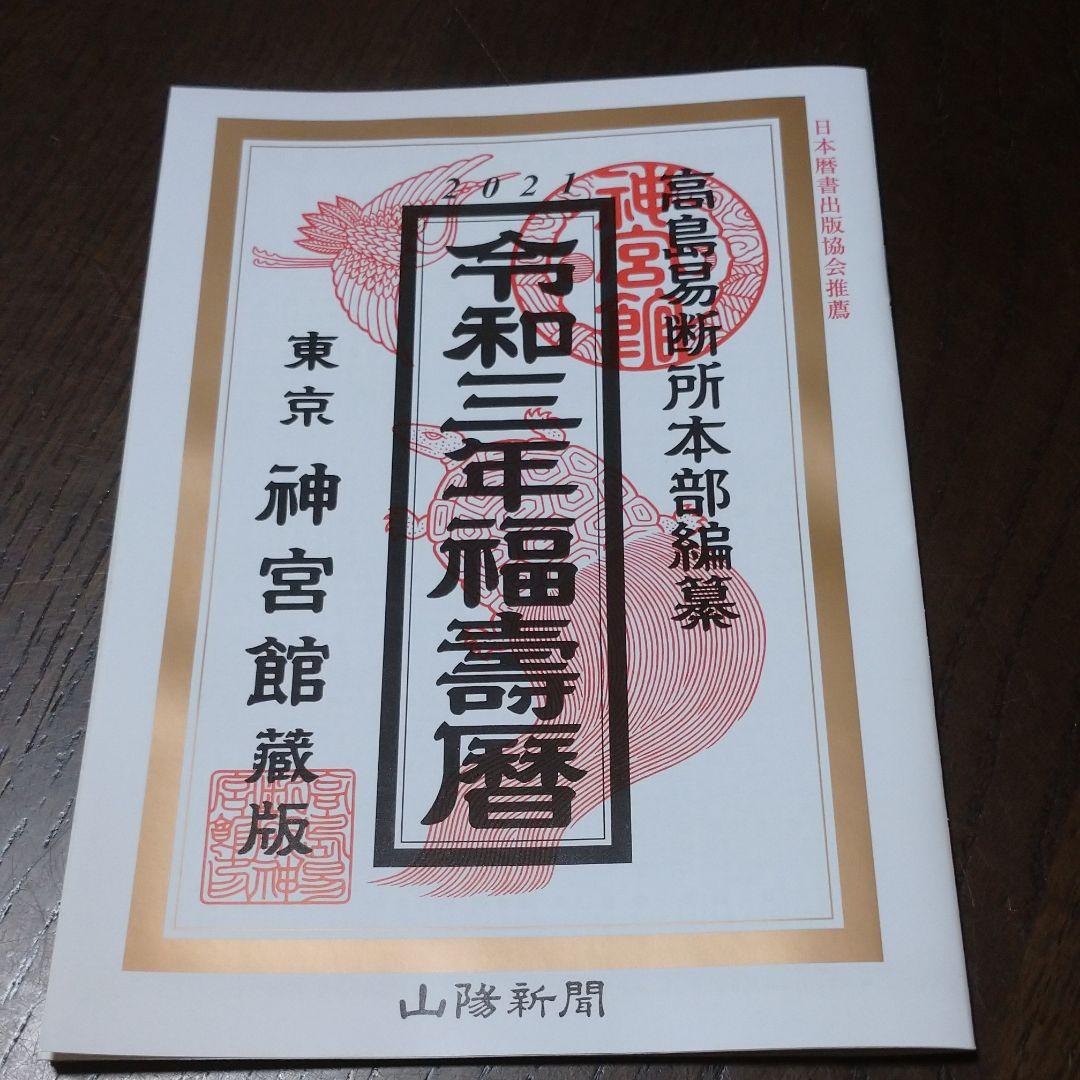 日本暦書出版協会推薦
2021
神宮館
高島易断所本部編纂
令和三年福壽暦
東京 神宮館藏版
山陽新聞